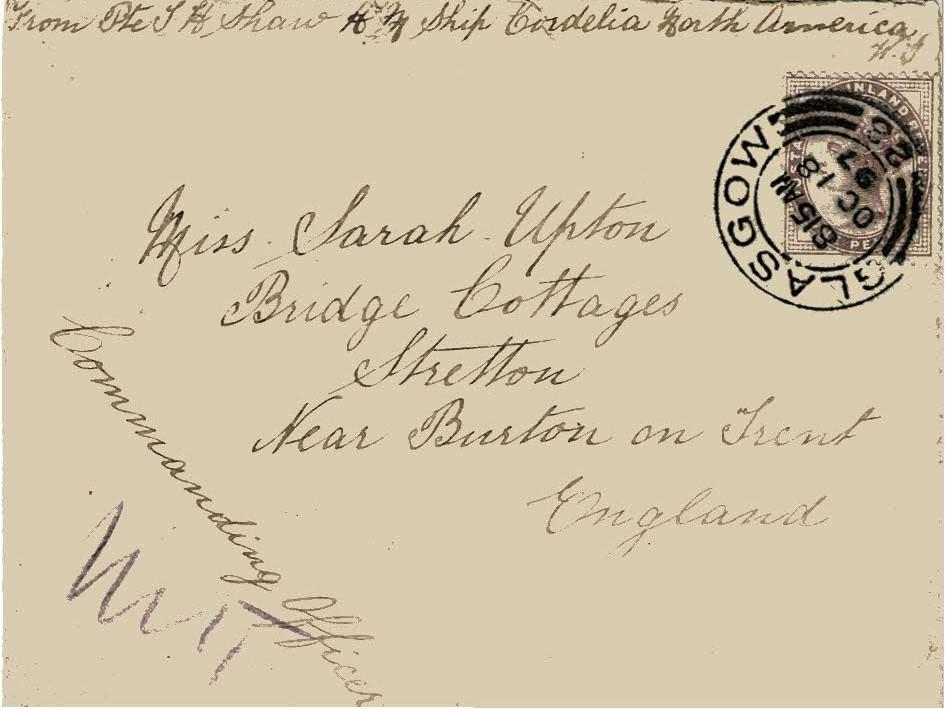 From Pte T H Shaw H M Ship Cordelia North America
W.I
Miss Sarah Upton
Bridge Cottages
Stretton
Near Burton on Trent
England
Commanding Officer
GLASGOW
8 15 AM
OC 18
97
INLAND RE
PE